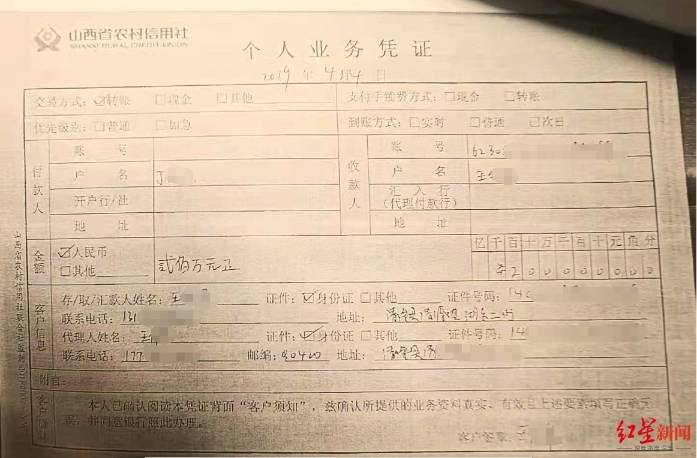 山西省农村信用社
SHANXI RURAL CREDIT UNION
个人业务凭证
2019年4月4日
交易方式：☑转账 □现金 □其他 支付手续费方式：□现金 □转账
优先级别：□普通 □加急 到账方式：□实时 □普通 □次日
付款人 账号 收款人 账号 6230
户名 丁 户名 王
开户行/社 汇入行（代理付款行）
地址 地址
金额 ☑人民币 □其他 贰佰万元正 亿千百十万千百十元角分
¥200000000
客户信息
存/取/汇款人姓名：王 证件：☑身份证 □其他 证件号码：14
联系电话：131 地址：
代理人姓名：王 证件：☑身份证 □其他 证件号码：14
联系电话：177 邮编： 地址：
附言：
本人已确认阅读本凭证背面“客户须知”，兹确认所提供的业务资料真实、有效且上述要素填写正确无误，并同意银行照此办理。
客户签章：王
山西省农村信用社联合社
红星新闻